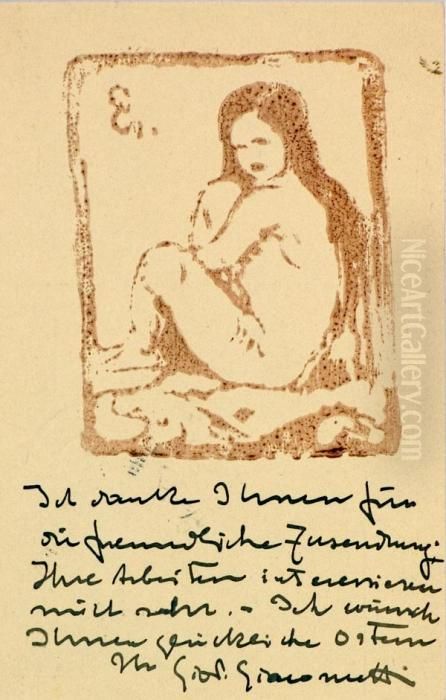 Ich danke Ihnen für
die freundliche Zusendung.
Ihre Arbeiten interessieren
mich sehr. – Ich wünsch
Ihnen glückliche Ostern
Ihr Giov. Giacometti
NiceArtGallery.com